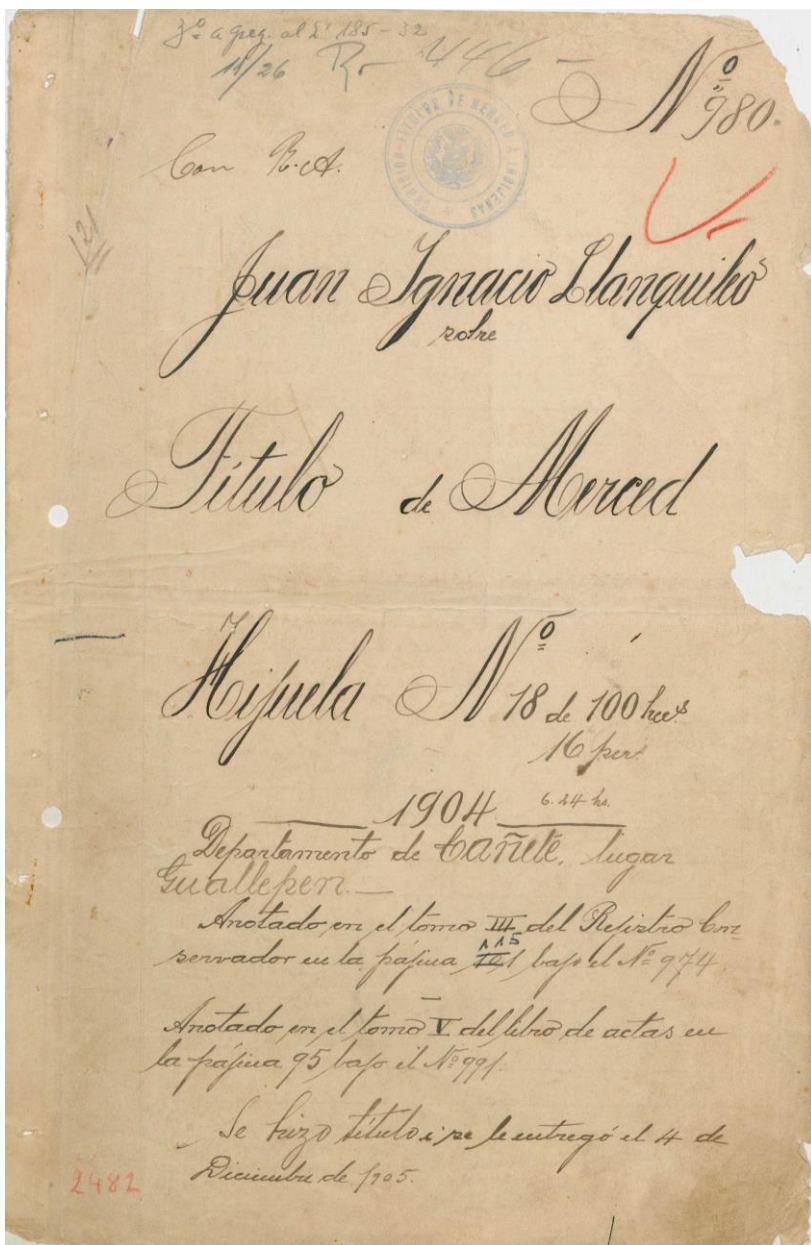 3º agreg. al L' 185-32
18/26 Rr 446 –
Nº 980.
Con R.A.
121
Juan Ignacio Llanquileo
sobre
Título de Merced
Hijuela Nº 18 de 100 hects
16 per.
1904 6.24 hs.
Departamento de Cañete, lugar
Guallepen.—
Anotado en el tomo III del Rejistro Con-
servador en la pájina 115 bajo el Nº 974
Anotado en el tomo V del libro de actas en
la pájina 95 bajo el Nº 991.
Se hizo título i se le entregó el 4 de
Diciembre de 1905.
2482